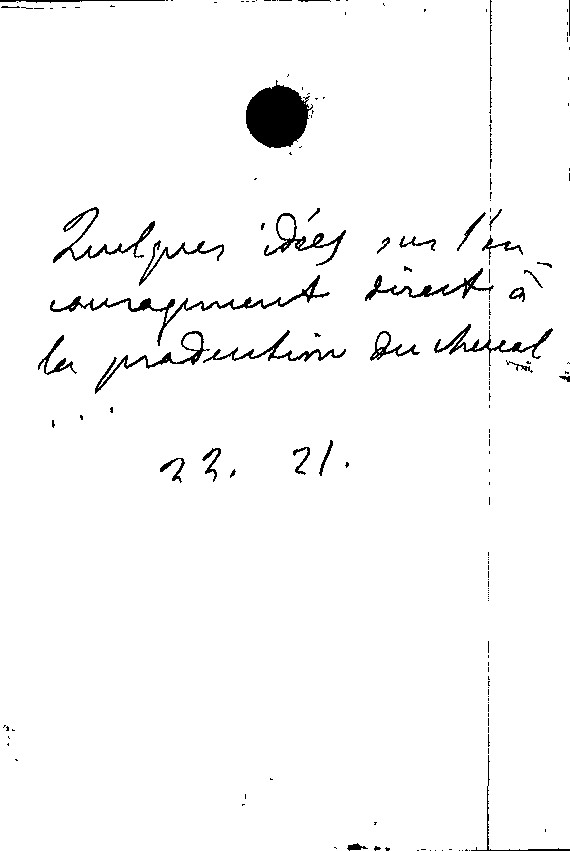 Quelques idées sur l'en
couragement direct à
la production du cheval
...
22. 21.